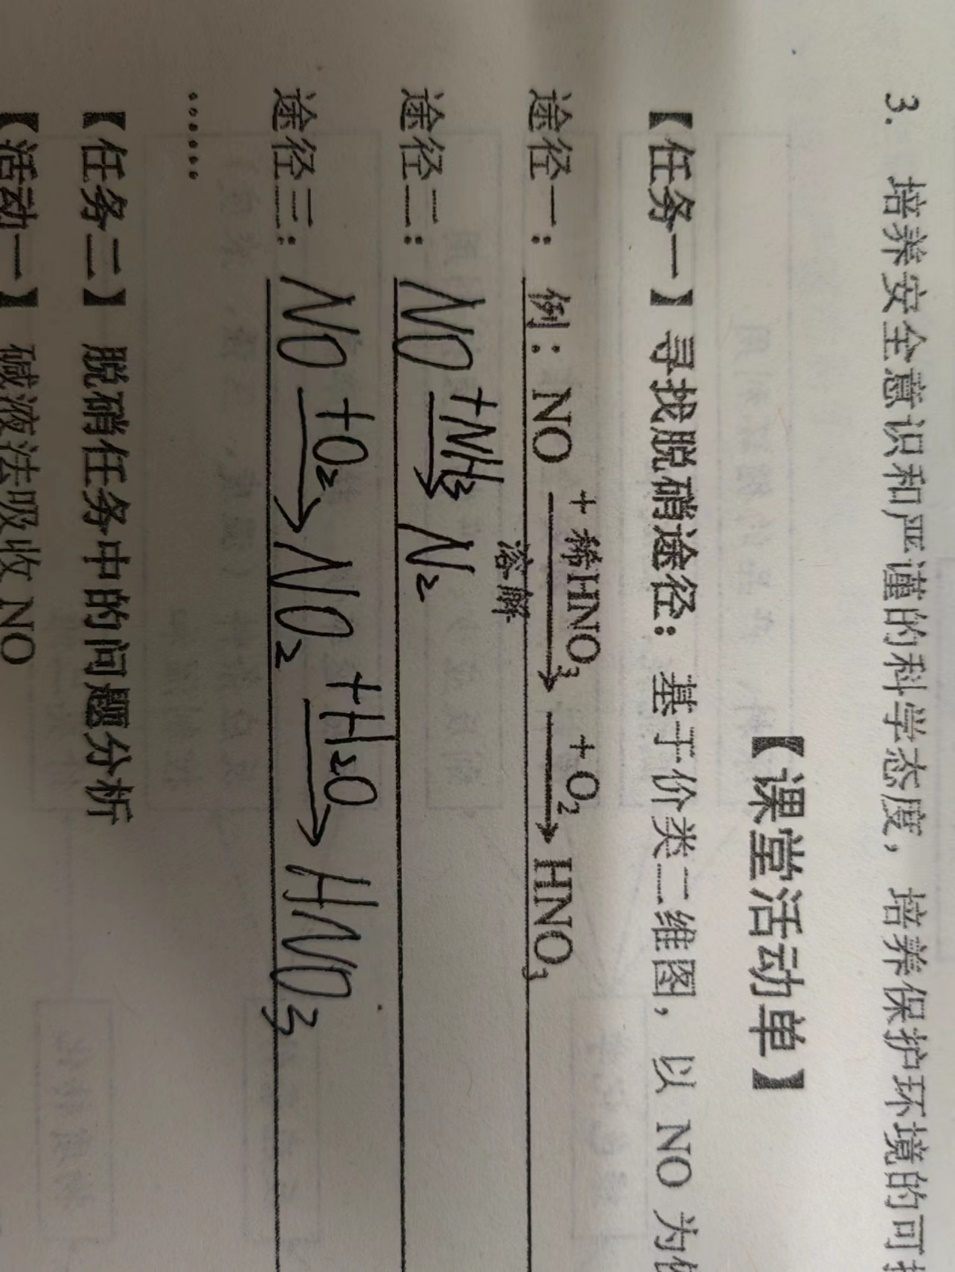 3. 培养安全意识和严谨的科学态度，培养保护环境的可
【课堂活动单】
【任务一】寻找脱硝途径：基于价类二维图，以 NO 为
途径一：例：NO +稀HNO₃ 溶解 → +O₂ → HNO₃
途径二：NO +NH₃ → N₂
途径三：NO +O₂ → NO₂ +H₂O → HNO₃
……
【任务二】脱硝任务中的问题分析
【活动一】碱液法吸收 NO